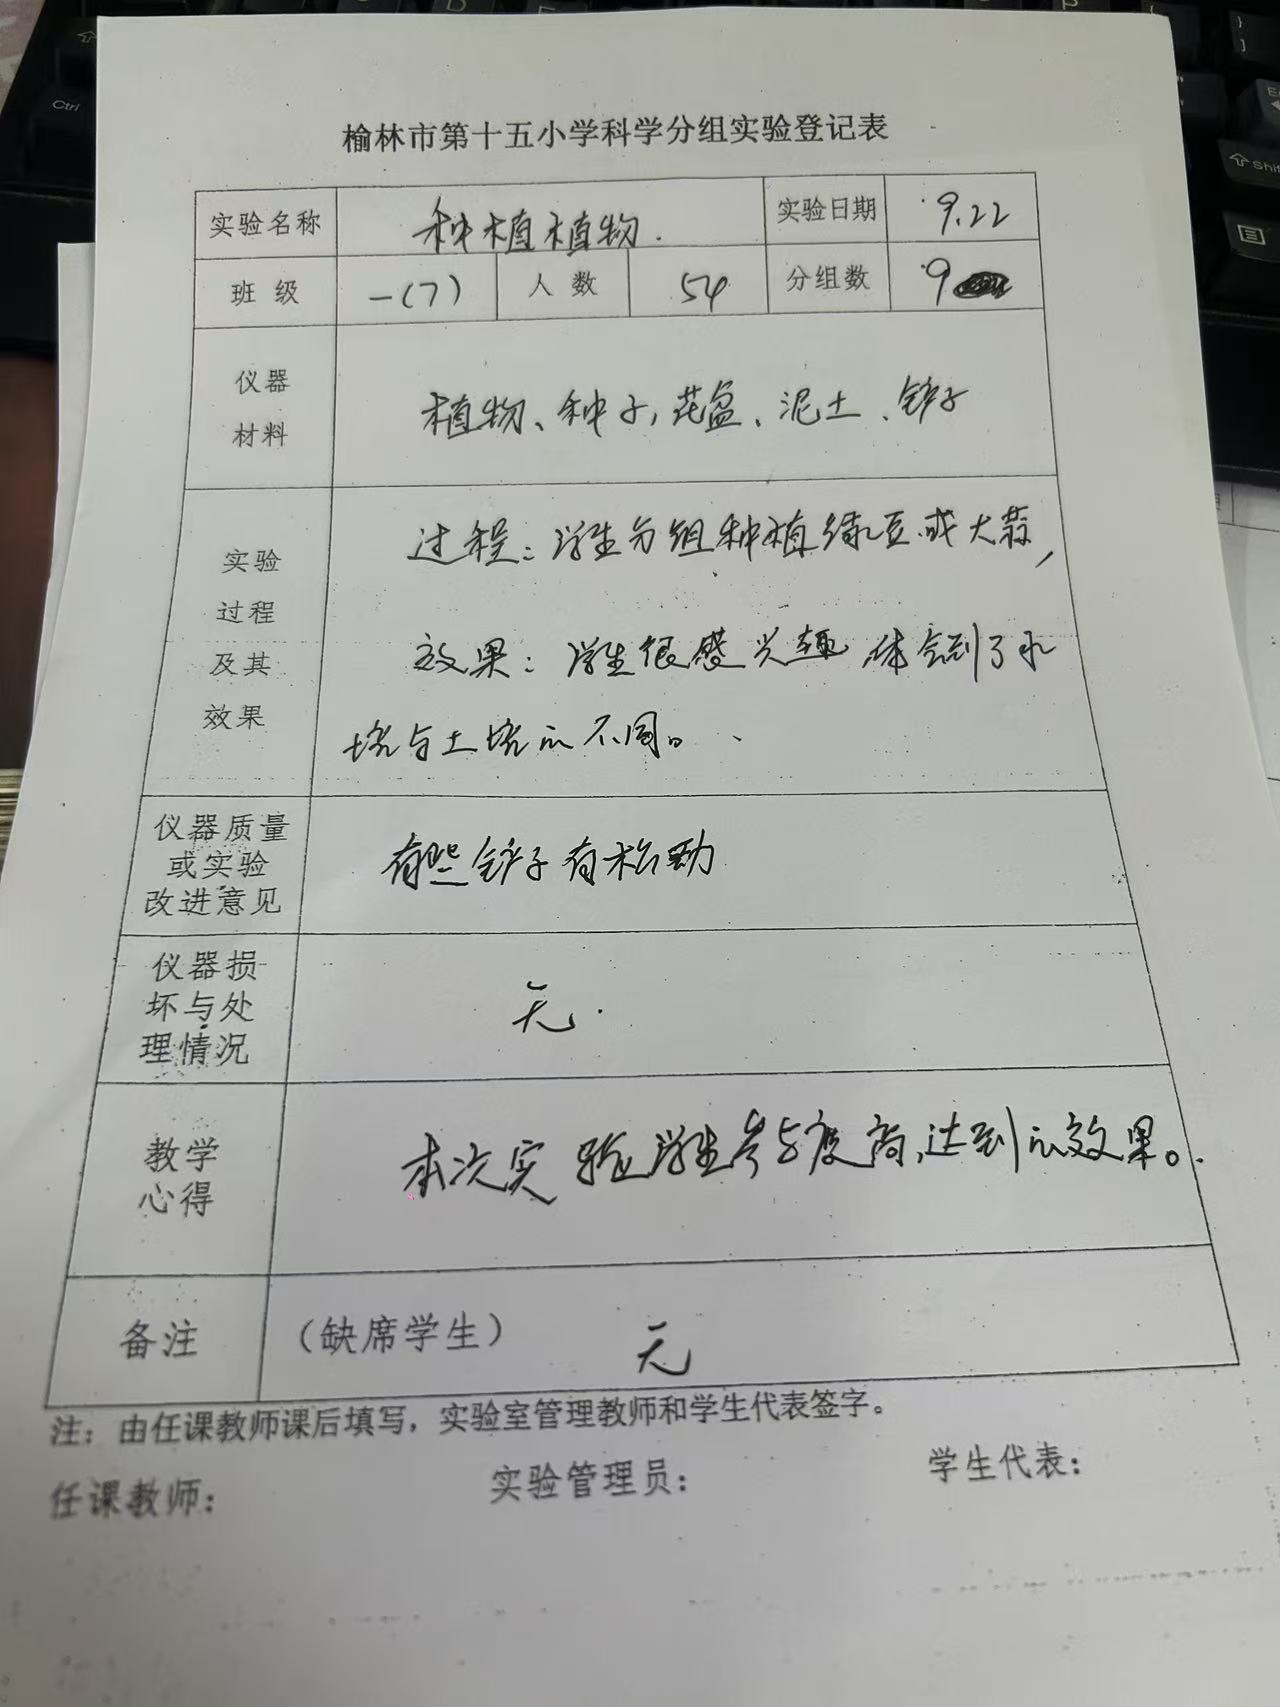 榆林市第十五小学科学分组实验登记表
实验名称 种植植物. 实验日期 9.22
班 级 一(7) 人 数 54 分组数 9
仪器
材料
植物、种子,花盆、泥土、铲子
实验
过程
及其
效果
过程:学生分组种植绿豆或大蒜,
效果:学生很感兴趣,体会到了水
培与土培的不同。
仪器质量
或实验
改进意见
有些铲子有松动
仪器损
坏与处
理情况
无.
教学
心得
本次实验学生参与度高,达到的效果。
备注 (缺席学生) 无
注:由任课教师课后填写,实验室管理教师和学生代表签字。
任课教师: 实验管理员: 学生代表:
Ctrl
Shift